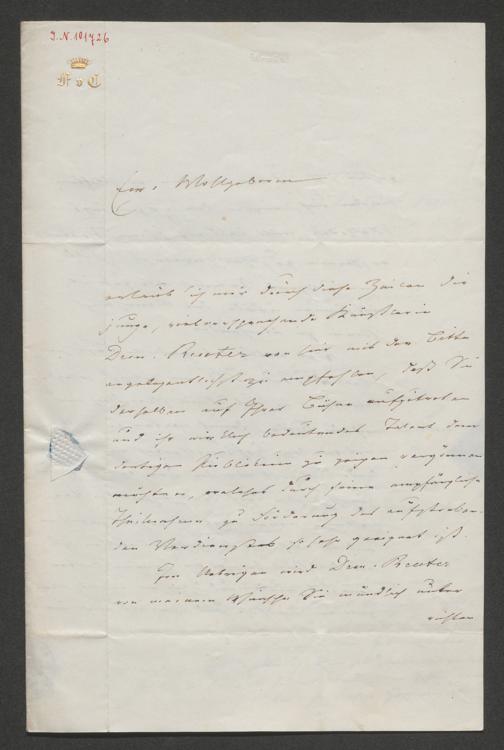 J. N. 101726
F v C
Euer Wohlgeboren
erlaub' ich mir durch diese Zeilen die
junge, vielversprechende Künstlerin
Dem. Reuter von hier mit der Bitte
angelegentlichst zu empfehlen, daß Sie
derselben auf Ihrer Bühne aufzutreten
und ihr wirklich bedeutendes Talent dem
dortigen Publikum zu zeigen vergönnen
möchten, welches durch seine empfängliche
Theilnahme zu Förderung des aufstreben-
den Verdienstes so sehr geeignet ist.
Im Uebrigen wird Dem. Reuter
von meinem Wunsche Sie mündlich unter
richten